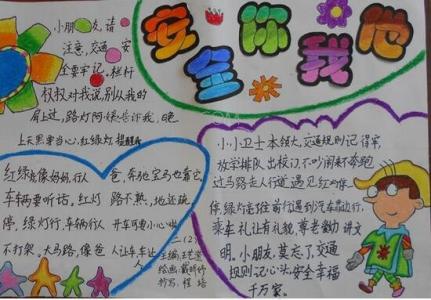 安全你我他
小朋友,请
注意,交通安
全要牢记。栏杆
杈杈对我说,别从我的
肩上过,路灯阿姨告诉我,晚
上天黑要当心,红绿灯提醒我
红绿灯像妈妈,行人
车辆要听话,红灯
停,绿灯行,车辆行人
不打架。大马路,像爸
爸,奔驰宝马也靠它,
路不熟,地还疏,
开车可要小心啦
人让车,车让
人
二(2)
主编:王艺莹
绘画:戴昕怡
抄写:程培
小小卫士本领大,交通规则记得牢,
放学排队出校门,不吵闹来不奔跑
过马路走人行道,遇见红灯停
停,绿灯走,车前行遇到汽车靠边行,
乘车礼让有礼貌,尊老爱幼讲文
明。小朋友,莫忘了,交通
规则记心头,安全幸福
千万家。